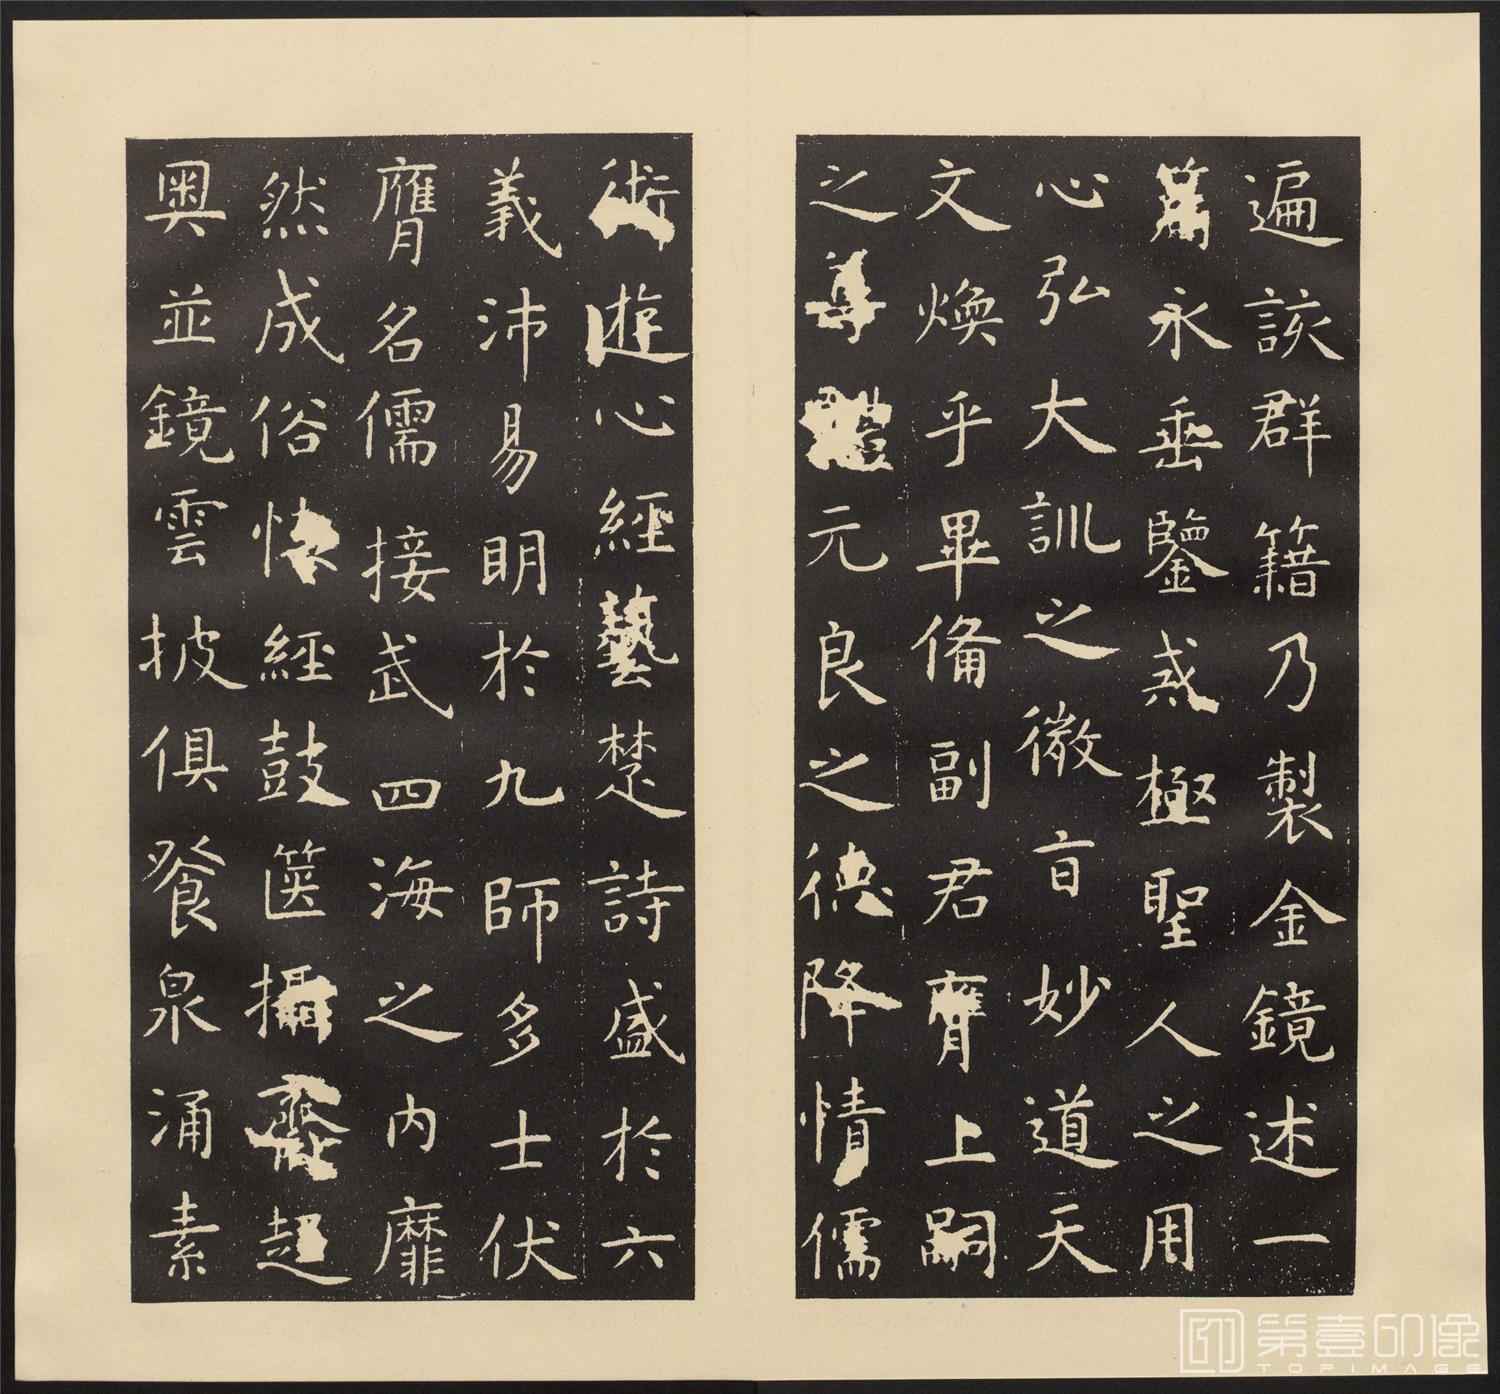 遍該群籍乃製金鏡述一
篇永垂鑒戒極聖人之用
心弘大訓之微旨妙道天
文煥乎畢備副君膺上嗣
之尊體元良之德降情儒
術遊心經藝楚詩盛於六
義沛易明於九師多士伏
膺名儒接武四海之內靡
然成俗懷經鼓篋攝齊趨
奧並鏡雲披俱餐泉涌素
第壹印像
TOPIMAGE